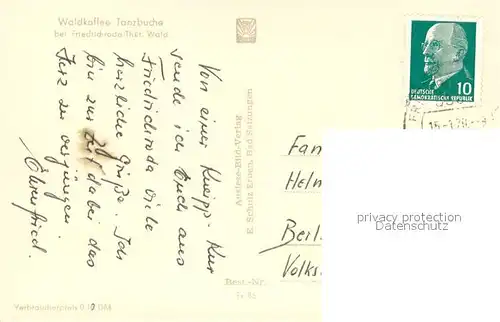 Waldkaffee Tanzbuche
bei Friedrichroda Thür. Wald
Von einer Kneipp-Kur
sende ich Euch aus
Friedrichroda viele
herzliche Grüße. Ich
bin zur Zeit dabei das
Herz zu verjüngen.
Ehrenfried.
Verbraucherpreis 0,10 DM
Auslese-Bild-Verlag
E. Schmitz Erben, Bad Salzungen
Best.-Nr.
10
DEUTSCHE
DEMOKRATISCHE REPUBLIK
Fam
Helm
Berl
Volks
privacy protection
Datenschutz